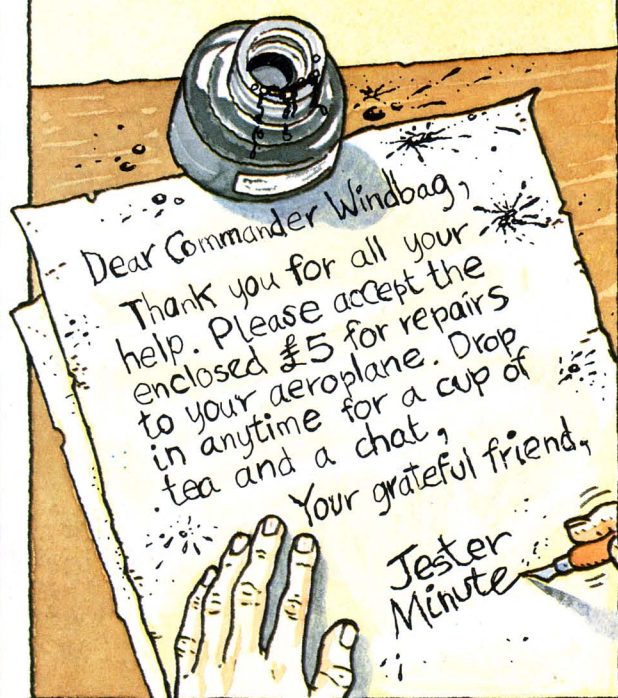 Dear Commander Windbag,
Thank you for all your
help. Please accept the
enclosed £5 for repairs
to your aeroplane. Drop
in anytime for a cup of
tea and a chat,
Your grateful friend,
Jester
Minute